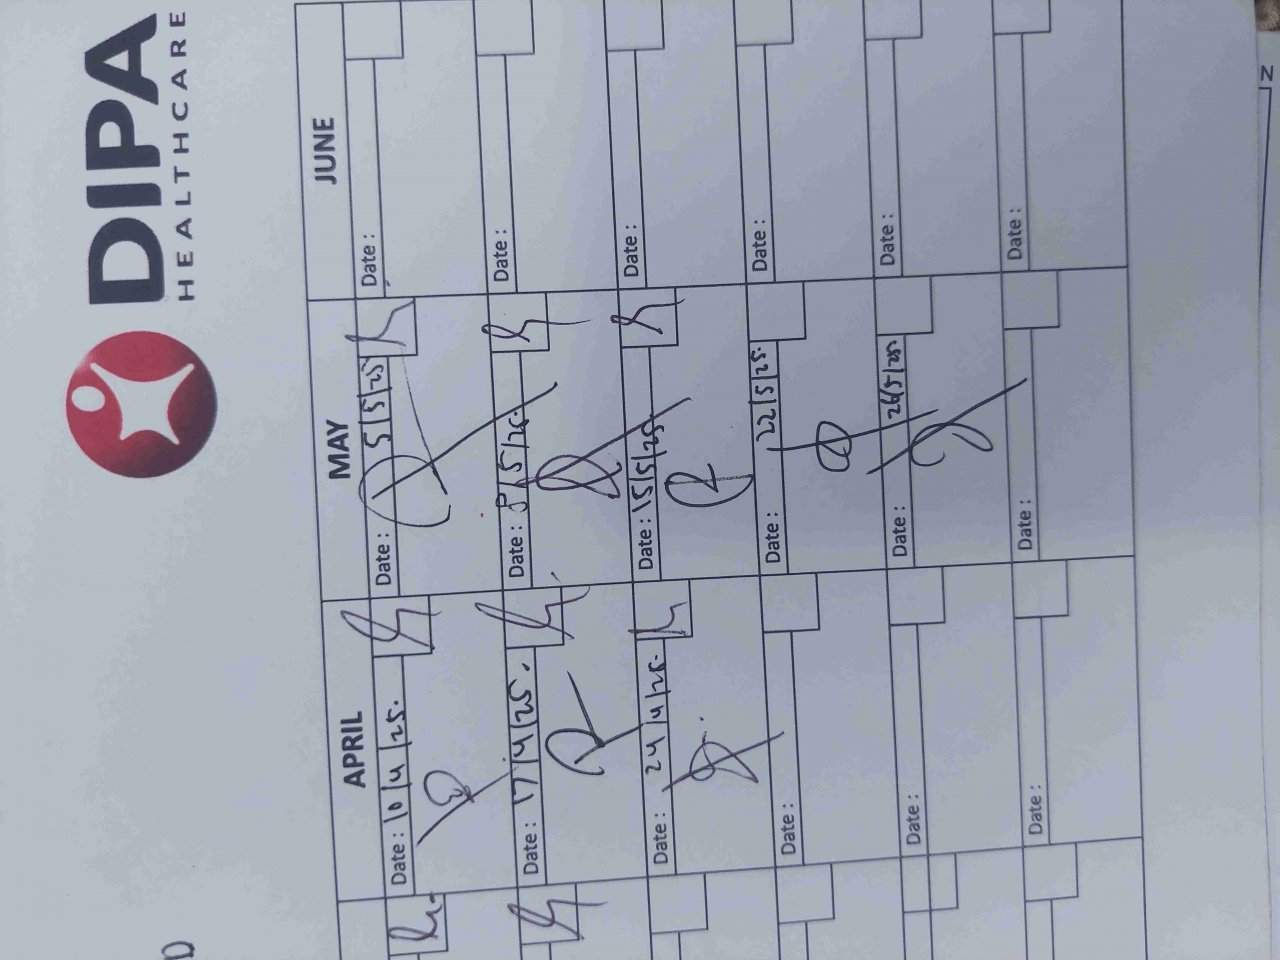 DIPA
HEALTHCARE
APRIL
MAY
JUNE
Date : 10/4/25.
Date : 5/5/25
Date :
Date : 17/4/25.
Date : 8/5/25.
Date :
Date : 24/4/25.
Date : 15/5/25.
Date :
Date :
Date : 22/5/25.
Date :
Date :
Date : 26/5/25.
Date :
Date :
Date :
Date :